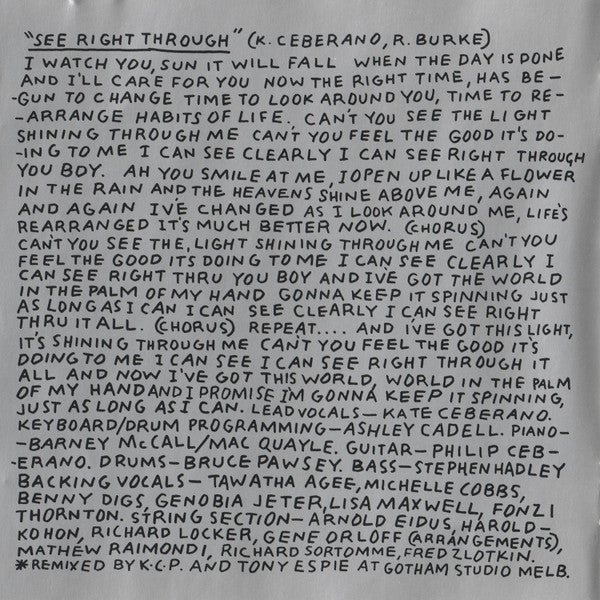 "SEE RIGHT THROUGH" (K. CEBERANO, R. BURKE)
I WATCH YOU, SUN IT WILL FALL WHEN THE DAY IS DONE
AND I'LL CARE FOR YOU NOW THE RIGHT TIME, HAS BE-
-GUN TO CHANGE TIME TO LOOK AROUND YOU, TIME TO RE-
-ARRANGE HABITS OF LIFE. CAN'T YOU SEE THE LIGHT
SHINING THROUGH ME CAN'T YOU FEEL THE GOOD IT'S DO-
-ING TO ME I CAN SEE CLEARLY I CAN SEE RIGHT THROUGH
YOU BOY. AH YOU SMILE AT ME, I OPEN UP LIKE A FLOWER
IN THE RAIN AND THE HEAVENS SHINE ABOVE ME, AGAIN
AND AGAIN I'VE CHANGED AS I LOOK AROUND ME, LIFE'S
REARRANGED IT'S MUCH BETTER NOW. (CHORUS)
CAN'T YOU SEE THE, LIGHT SHINING THROUGH ME CAN'T YOU
FEEL THE GOOD ITS DOING TO ME I CAN SEE CLEARLY I
CAN SEE RIGHT THRU YOU BOY AND I'VE GOT THE WORLD
IN THE PALM OF MY HAND GONNA KEEP IT SPINNING JUST
AS LONG AS I CAN I CAN SEE CLEARLY I CAN SEE RIGHT
THRU IT ALL. (CHORUS) REPEAT.... AND I'VE GOT THIS LIGHT,
IT'S SHINING THROUGH ME CAN'T YOU FEEL THE GOOD IT'S
DOING TO ME I CAN SEE I CAN SEE RIGHT THROUGH IT
ALL AND NOW I'VE GOT THIS WORLD, WORLD IN THE PALM
OF MY HAND AND I PROMISE I'M GONNA KEEP IT SPINNING,
JUST AS LONG AS I CAN. LEAD VOCALS - KATE CEBERANO.
KEYBOARD/DRUM PROGRAMMING - ASHLEY CADELL. PIANO-
-BARNEY McCALL/MAC QUAYLE. GUITAR - PHILIP CEB-
-ERANO. DRUMS - BRUCE PAWSEY. BASS - STEPHEN HADLEY
BACKING VOCALS - TAWATHA AGEE, MICHELLE COBBS,
BENNY DIGS, GENOBIA JETER, LISA MAXWELL, FONZI
THORNTON. STRING SECTION - ARNOLD EIDUS, HAROLD-
KOHON, RICHARD LOCKER, GENE ORLOFF (ARRANGEMENTS),
MATHEW RAIMONDI, RICHARD SORTOMME, FRED ZLOTKIN.
*REMIXED BY K.C.P. AND TONY ESPIE AT GOTHAM STUDIO MELB.